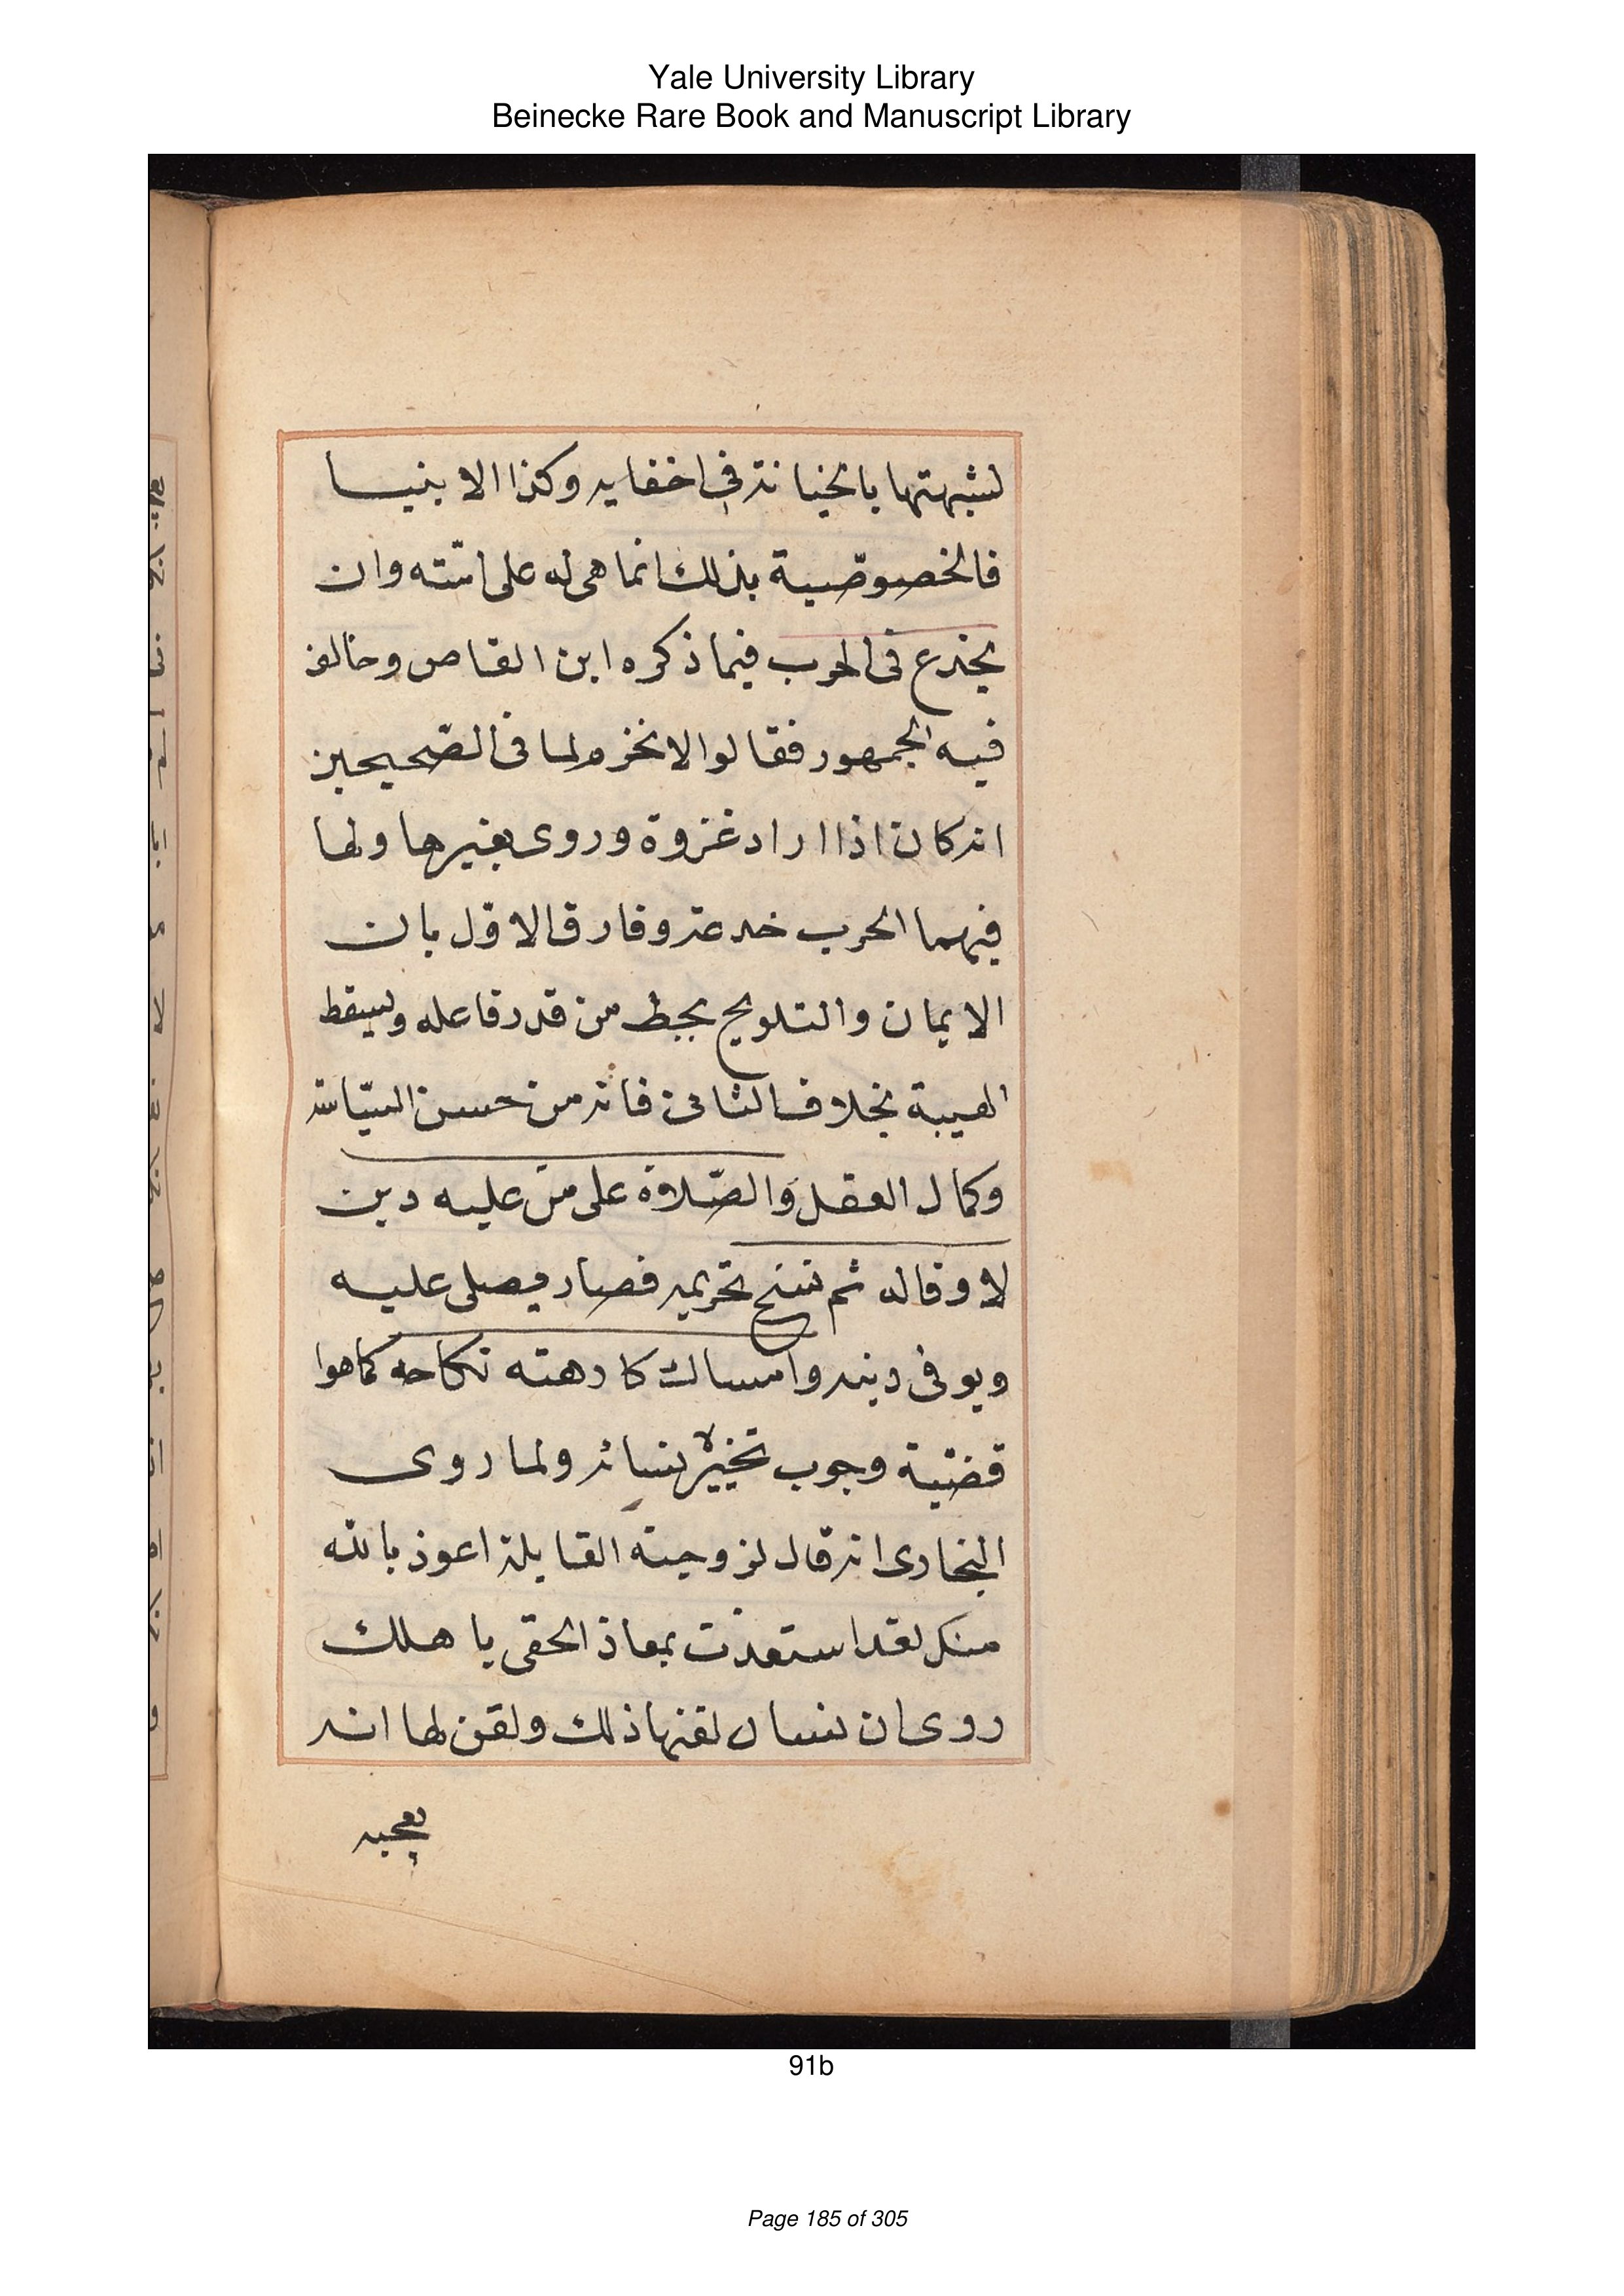 Yale University Library
Beinecke Rare Book and Manuscript Library
لشبهتها بالخيانة في اخفايه وكذا الانبيسا
فالخصوصّية بذلك انما هى له على امّته وان
يخدع فى الحرب فيما ذكره ابن القاص وخالف
فيه الجمهور فقالوا لا تخرم لما فى الصّحيحين
انه كان اذا اراد غزوة وروى بغيرها ولما
فيهما الحرب خدعة وفارق الاوّل بان
الايمان والتلويح يحط من قدر فاعله ويسقط
الهيبة بخلاف الثانى فانه من حسن السيّاسة
وكمال العقل والصّلاوة على من عليه دين
لا وفاله ثم نسخ تحريمه فصار يصلى عليه
ويوفى دينه وامساك كارهته نكاحه كما هوا
قضيّة وجوب تخييره نسائه ولما روى
البخارى انه قال لزوجته القايلة اعوذ بالله
منك لقد استعذت بمعاذ الحقى باهلك
روى ان نساه لقنها ذلك ولقن لها انه
يعجبه
91b
Page 185 of 305